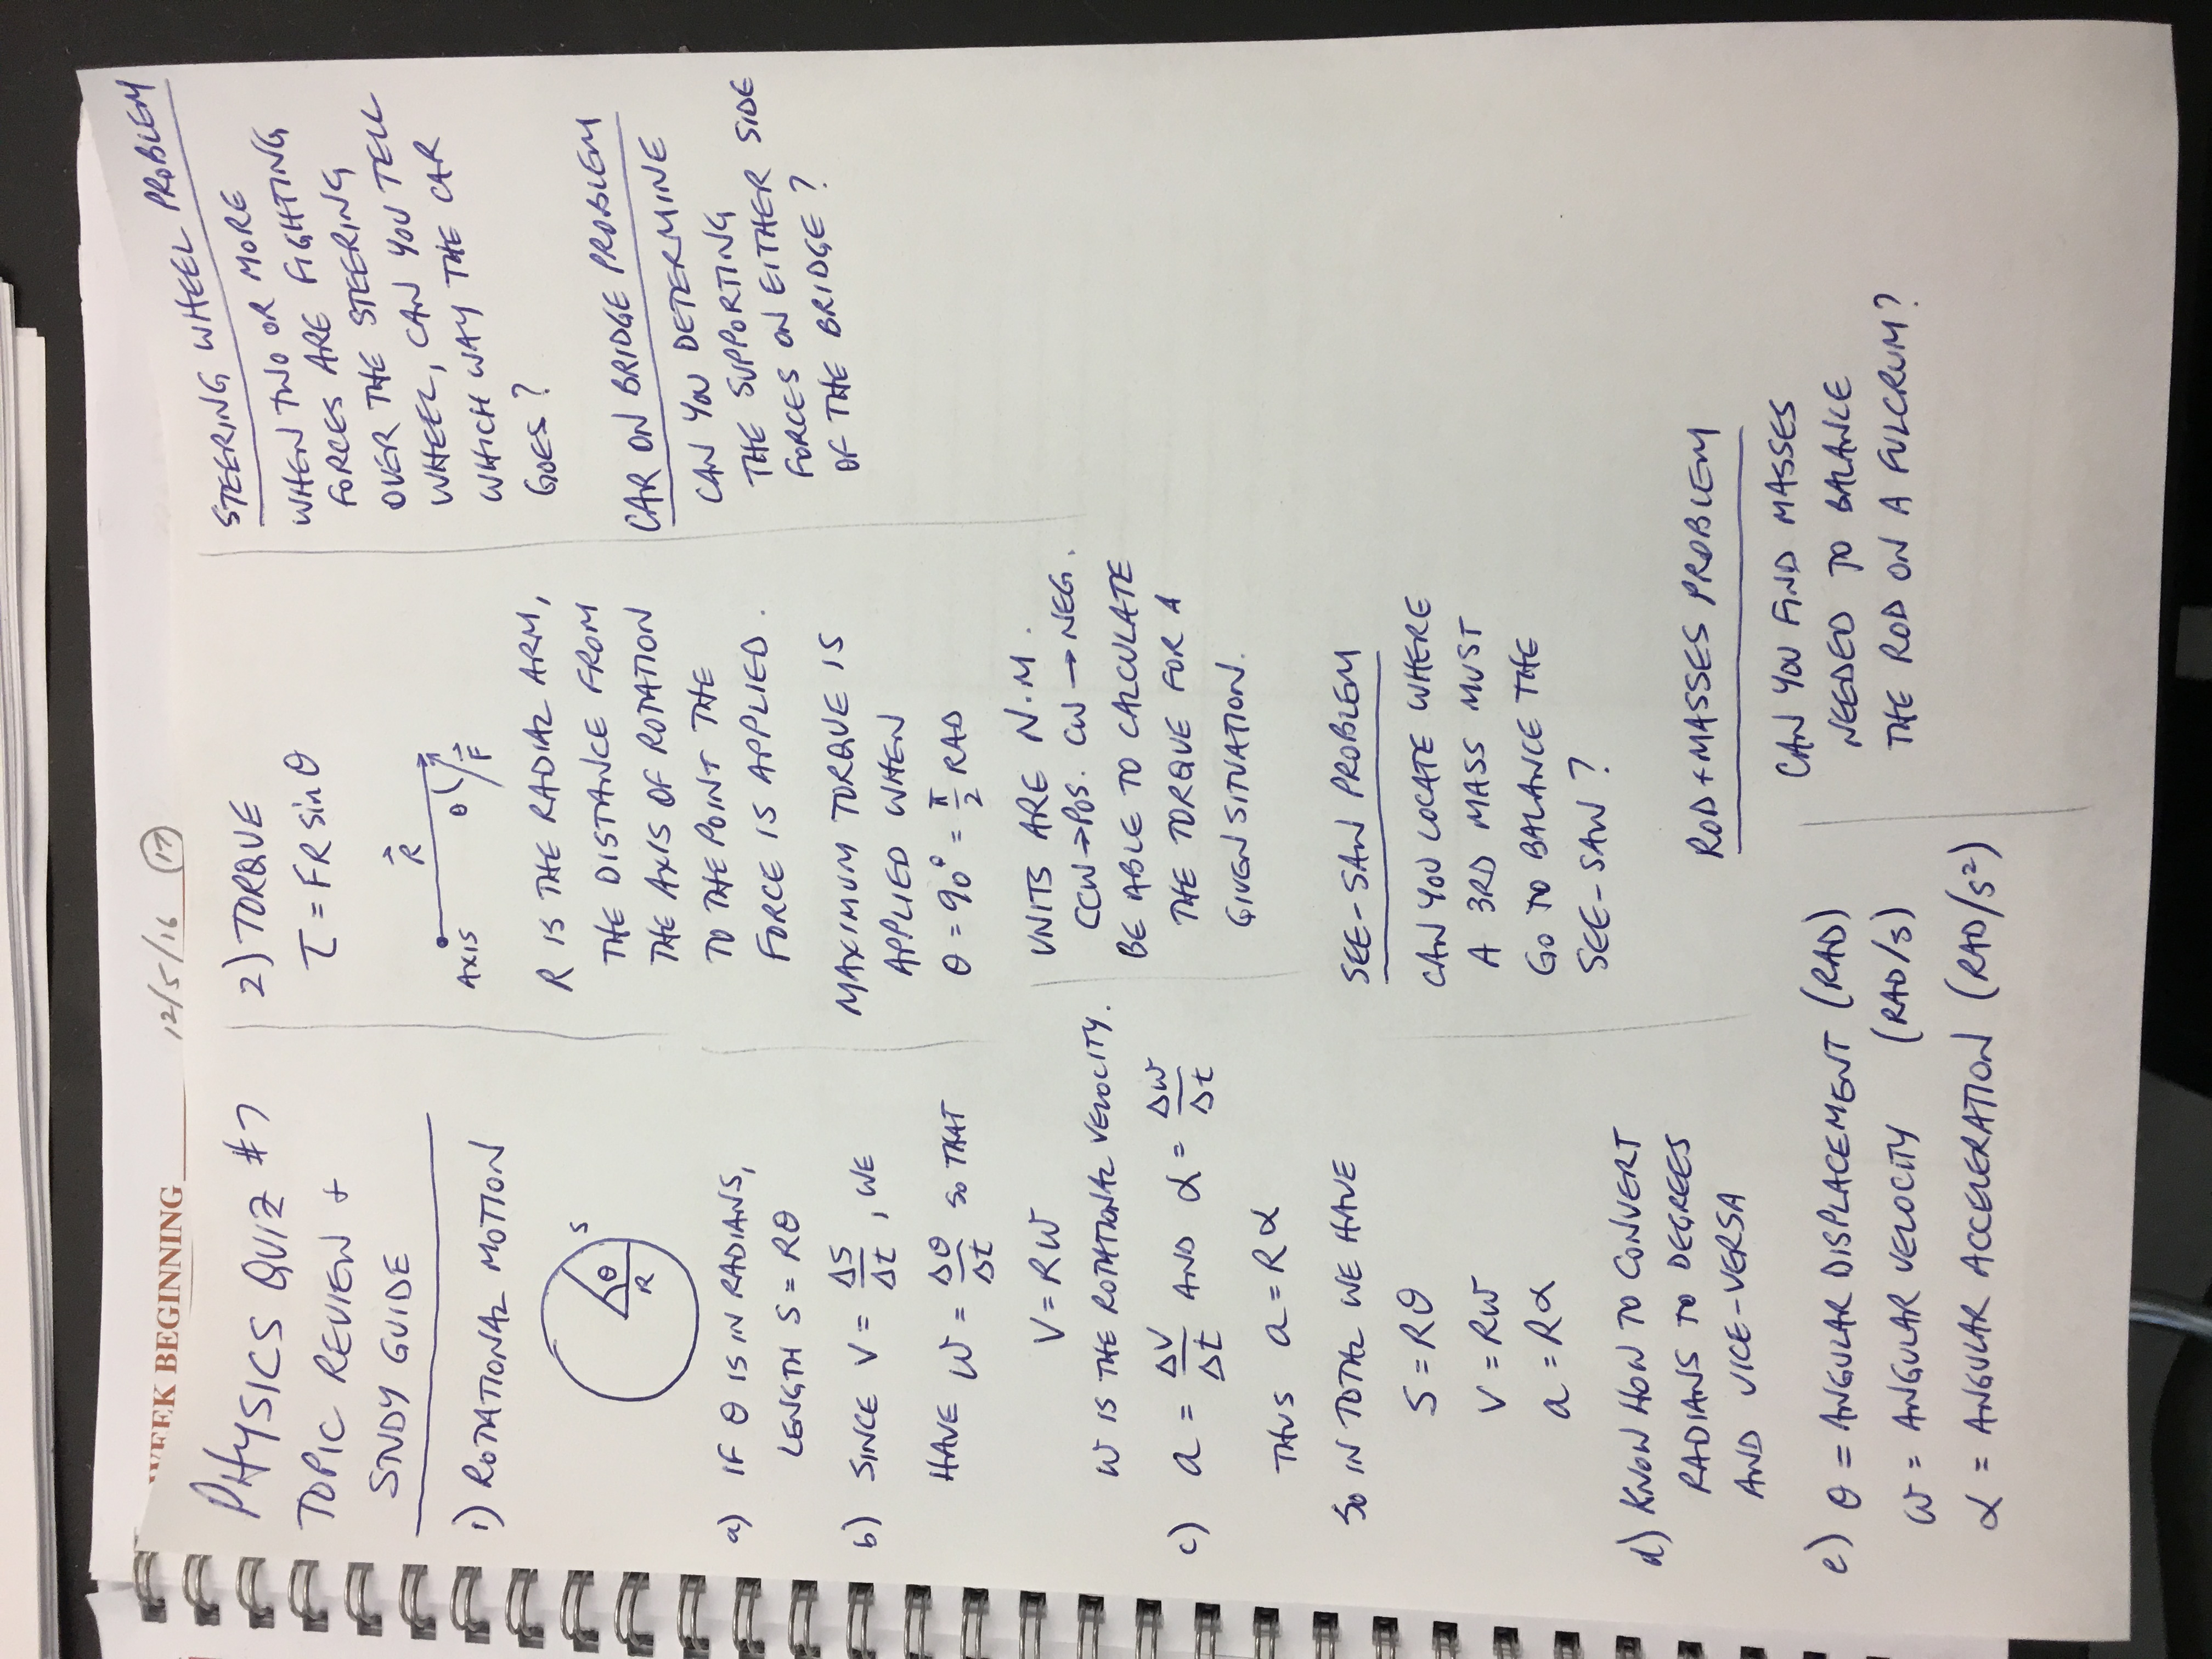 WEEK BEGINNING 12/5/16 (17)
PHYSICS QUIZ #7
TOPIC REVIEW +
STUDY GUIDE
1) ROTATIONAL MOTION
θ
R
S
a) IF θ IS IN RADIANS,
LENGTH S = Rθ
b) SINCE V = ΔS/Δt, WE
HAVE W = Δθ/Δt SO THAT
V = RW
W IS THE ROTATIONAL VELOCITY.
c) a = ΔV/Δt AND α = ΔW/Δt
THUS a = Rα
SO IN TOTAL WE HAVE
S = Rθ
V = RW
a = Rα
d) KNOW HOW TO CONVERT
RADIANS TO DEGREES
AND VICE-VERSA
e) θ = ANGULAR DISPLACEMENT (RAD)
W = ANGULAR VELOCITY (RAD/S)
α = ANGULAR ACCELERATION (RAD/S²)
2) TORQUE
τ = FR sin θ
AXIS
R
θ
F
R IS THE RADIAL ARM,
THE DISTANCE FROM
THE AXIS OF ROTATION
TO THE POINT THE
FORCE IS APPLIED.
MAXIMUM TORQUE IS
APPLIED WHEN
θ = 90° = π/2 RAD
UNITS ARE N·M.
CCW→POS. CW→NEG.
BE ABLE TO CALCULATE
THE TORQUE FOR A
GIVEN SITUATION.
SEE-SAW PROBLEM
CAN YOU LOCATE WHERE
A 3RD MASS MUST
GO TO BALANCE THE
SEE-SAW?
ROD + MASSES PROBLEM
CAN YOU FIND MASSES
NEEDED TO BALANCE
THE ROD ON A FULCRUM?
STEERING WHEEL PROBLEM
WHEN TWO OR MORE
FORCES ARE FIGHTING
OVER THE STEERING
WHEEL, CAN YOU TELL
WHICH WAY THE CAR
GOES?
CAR ON BRIDGE PROBLEM
CAN YOU DETERMINE
THE SUPPORTING
FORCES ON EITHER SIDE
OF THE BRIDGE?